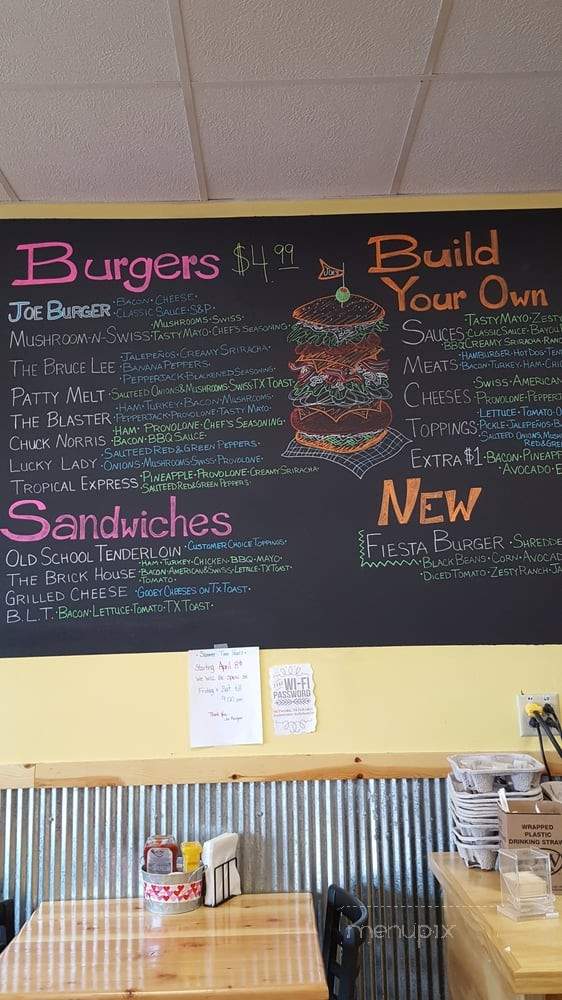 Burgers $4.99
JOE BURGER • BACON • CHEESE •
CLASSIC SAUCE • S&P •
MUSHROOM-N-SWISS • MUSHROOMS • SWISS •
TASTY MAYO • CHEF'S SEASONING
THE BRUCE LEE • JALEPEÑOS • CREAMY SRIRACHA •
BANANA PEPPERS •
PEPPERJACK • BLACKENED SEASONING •
PATTY MELT • SAUTEED ONIONS & MUSHROOMS • SWISS • TX TOAST •
THE BLASTER • HAM • TURKEY • BACON • MUSHROOMS •
PEPPERJACK • PROVOLONE • TASTY MAYO •
CHUCK NORRIS • HAM • PROVOLONE • CHEF'S SEASONING
• BACON • BBQ SAUCE •
LUCKY LADY • SAUTEED RED & GREEN PEPPERS •
ONIONS • MUSHROOMS • SWISS • PROVOLONE •
TROPICAL EXPRESS • PINEAPPLE • PROVOLONE • CREAMY SRIRACHA •
SAUTEED RED & GREEN PEPPERS •
Sandwiches
OLD SCHOOL TENDERLOIN • CUSTOMER CHOICE TOPPINGS •
THE BRICK HOUSE • HAM • TURKEY • CHICKEN • BBQ • MAYO •
BACON • AMERICAN & SWISS • LETTUCE • TX TOAST •
TOMATO •
GRILLED CHEESE • GOOEY CHEESES ON TX TOAST •
B.L.T. • BACON • LETTUCE • TOMATO • TX TOAST •
JOE'S
Build
Your Own
SAUCES TASTY MAYO • ZESTY
CLASSIC SAUCE • BAYOU
BBQ CREAMY SRIRACHA • RANC
MEATS HAMBURGER • HOT DOG • TEN
BACON • TURKEY • HAM • CHIC
CHEESES • SWISS • AMERICAN
PROVOLONE • PEPPERJ
TOPPINGS LETTUCE • TOMATO • O
PICKLE • JALEPEÑOS • B
SAUTEED ONIONS, MUSH
RED & GRE
EXTRA $1 • BACON • PINEAPP
• AVOCADO • E
NEW
FIESTA BURGER • SHREDDE
• BLACK BEANS • CORN • AVOCAD
DICED TOMATO • ZESTY RANCH • JA
• Summer Time Hours •
Starting April 8th
We will be open on
Friday & Sat till
9:00 pm
Thank You,
WI-FI
PASSWORD
WRAPPED
PLASTIC
DRINKING STRAW
menupix